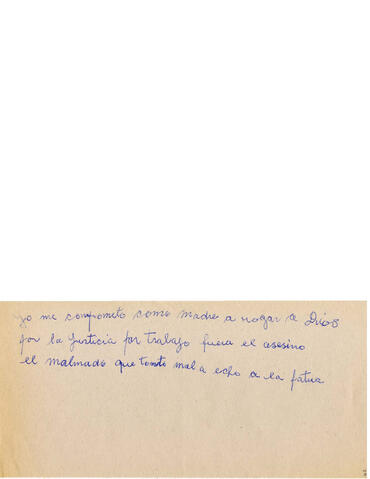 yo me comprometo como madre a rogar a Dios
por la justicia por trabajo fuera el asesino
el malmado que tonto mal a echo a la patria